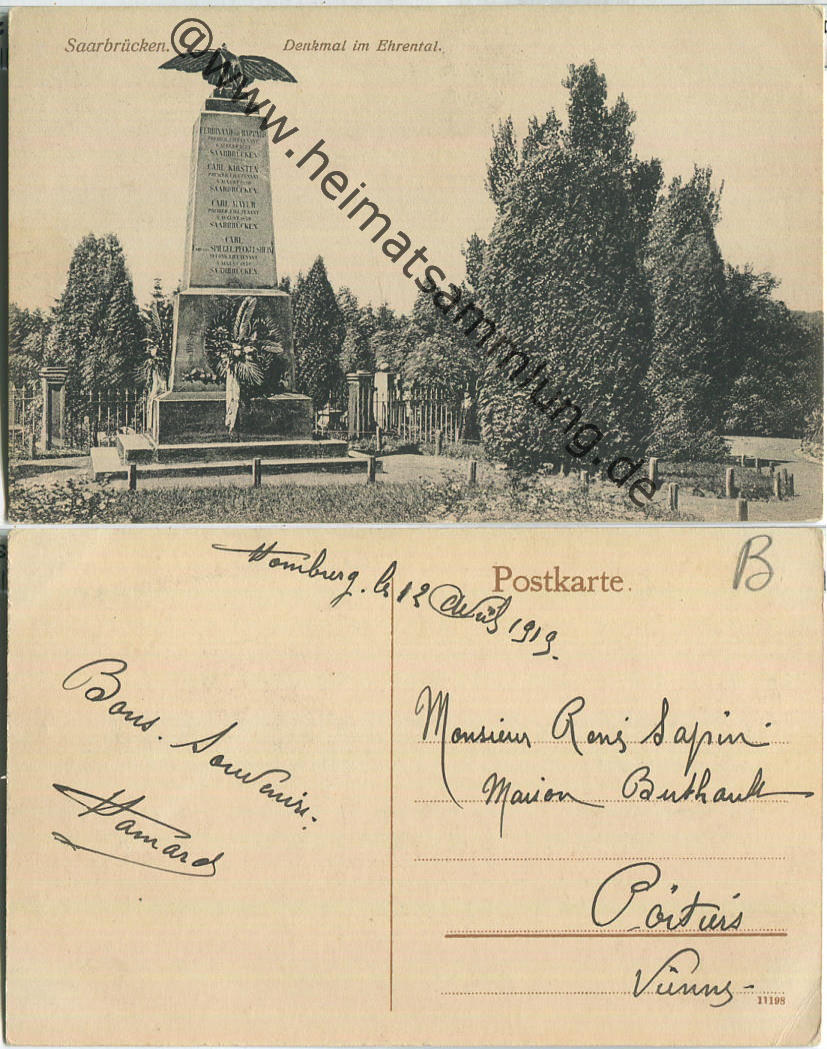 Saarbrücken.
Denkmal im Ehrental.
@www.heimatsammlung.de
SAARBRÜCKEN
CARL KIRSTEN
SAARBRÜCKEN
CARL MAYER
SAARBRÜCKEN
CARL
SAARBRÜCKEN
Postkarte.
B
Homburg. le 12 Avril 1919.
Bons. Souvenirs.
Hamard
Monsieur René Sapin
Maison Berthault
Poitiers
Vienne
11198